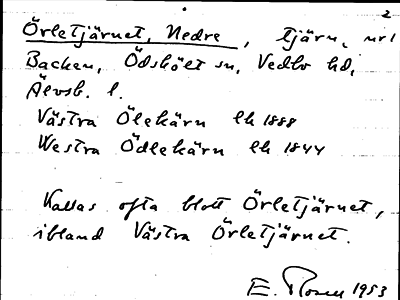 2
Örletjärnet, Nedre, tjärn, nr 1
Backen, Ödskölt sn, Vedbo hd,
Älvsb. l.
Västra Ölekärn lk 1888
Westra Ödlekärn lk 1844
Kallas ofta blott Örletjärnet,
ibland Västra Örletjärnet.
E. Rosen 1953